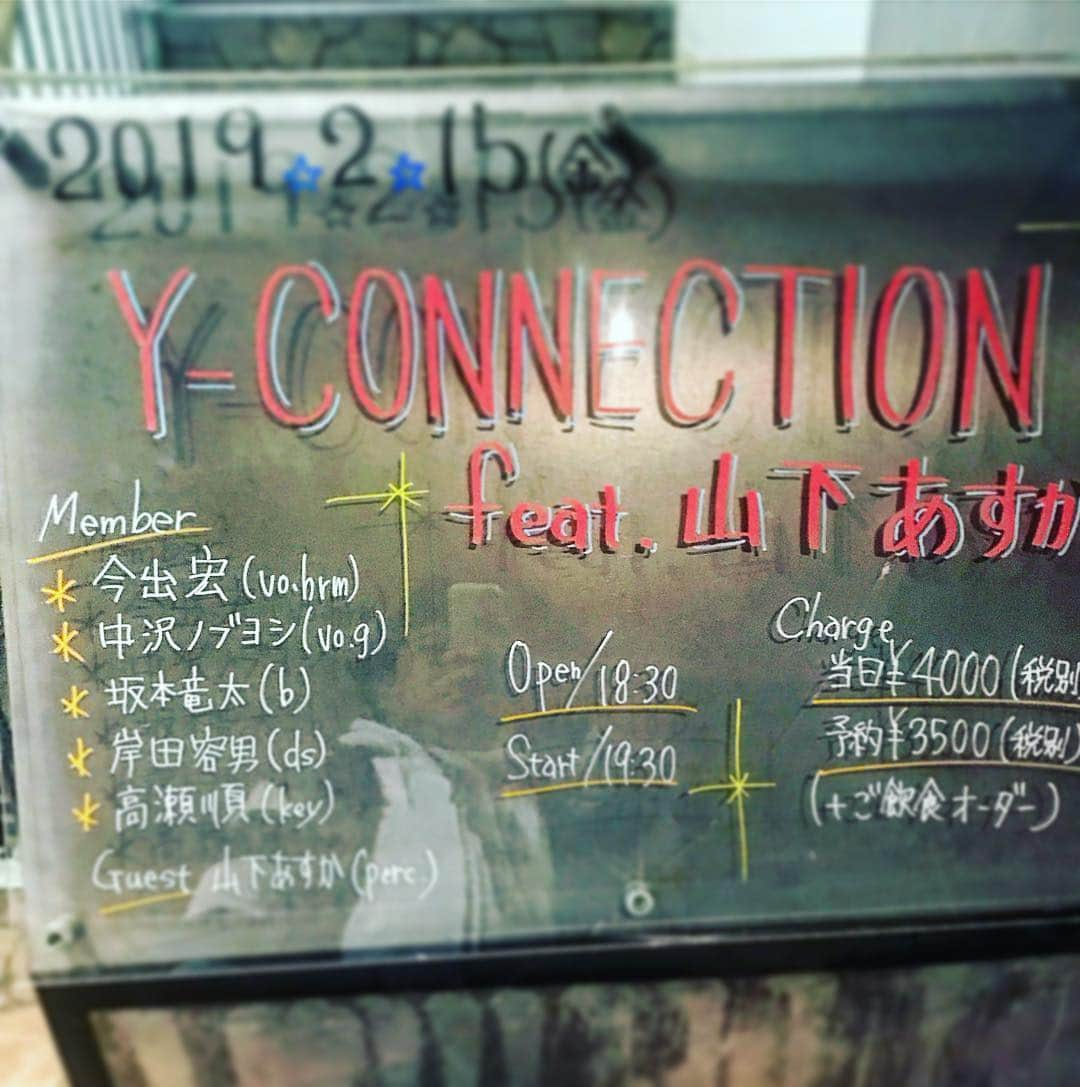 2019☆2☆15(金)
Y-CONNECTION
feat. 山下あすか
Member
* 今出宏(vo.hrm)
* 中沢ノブヨシ(vo.g)
* 坂本竜太(b)
* 岸田容男(ds)
* 高瀬順(key)
Guest 山下あすか(perc.)
Open/18:30
Start/19:30
Charge
当日¥4000(税別
予約¥3500(税別)
(+ご飲食オーダー)